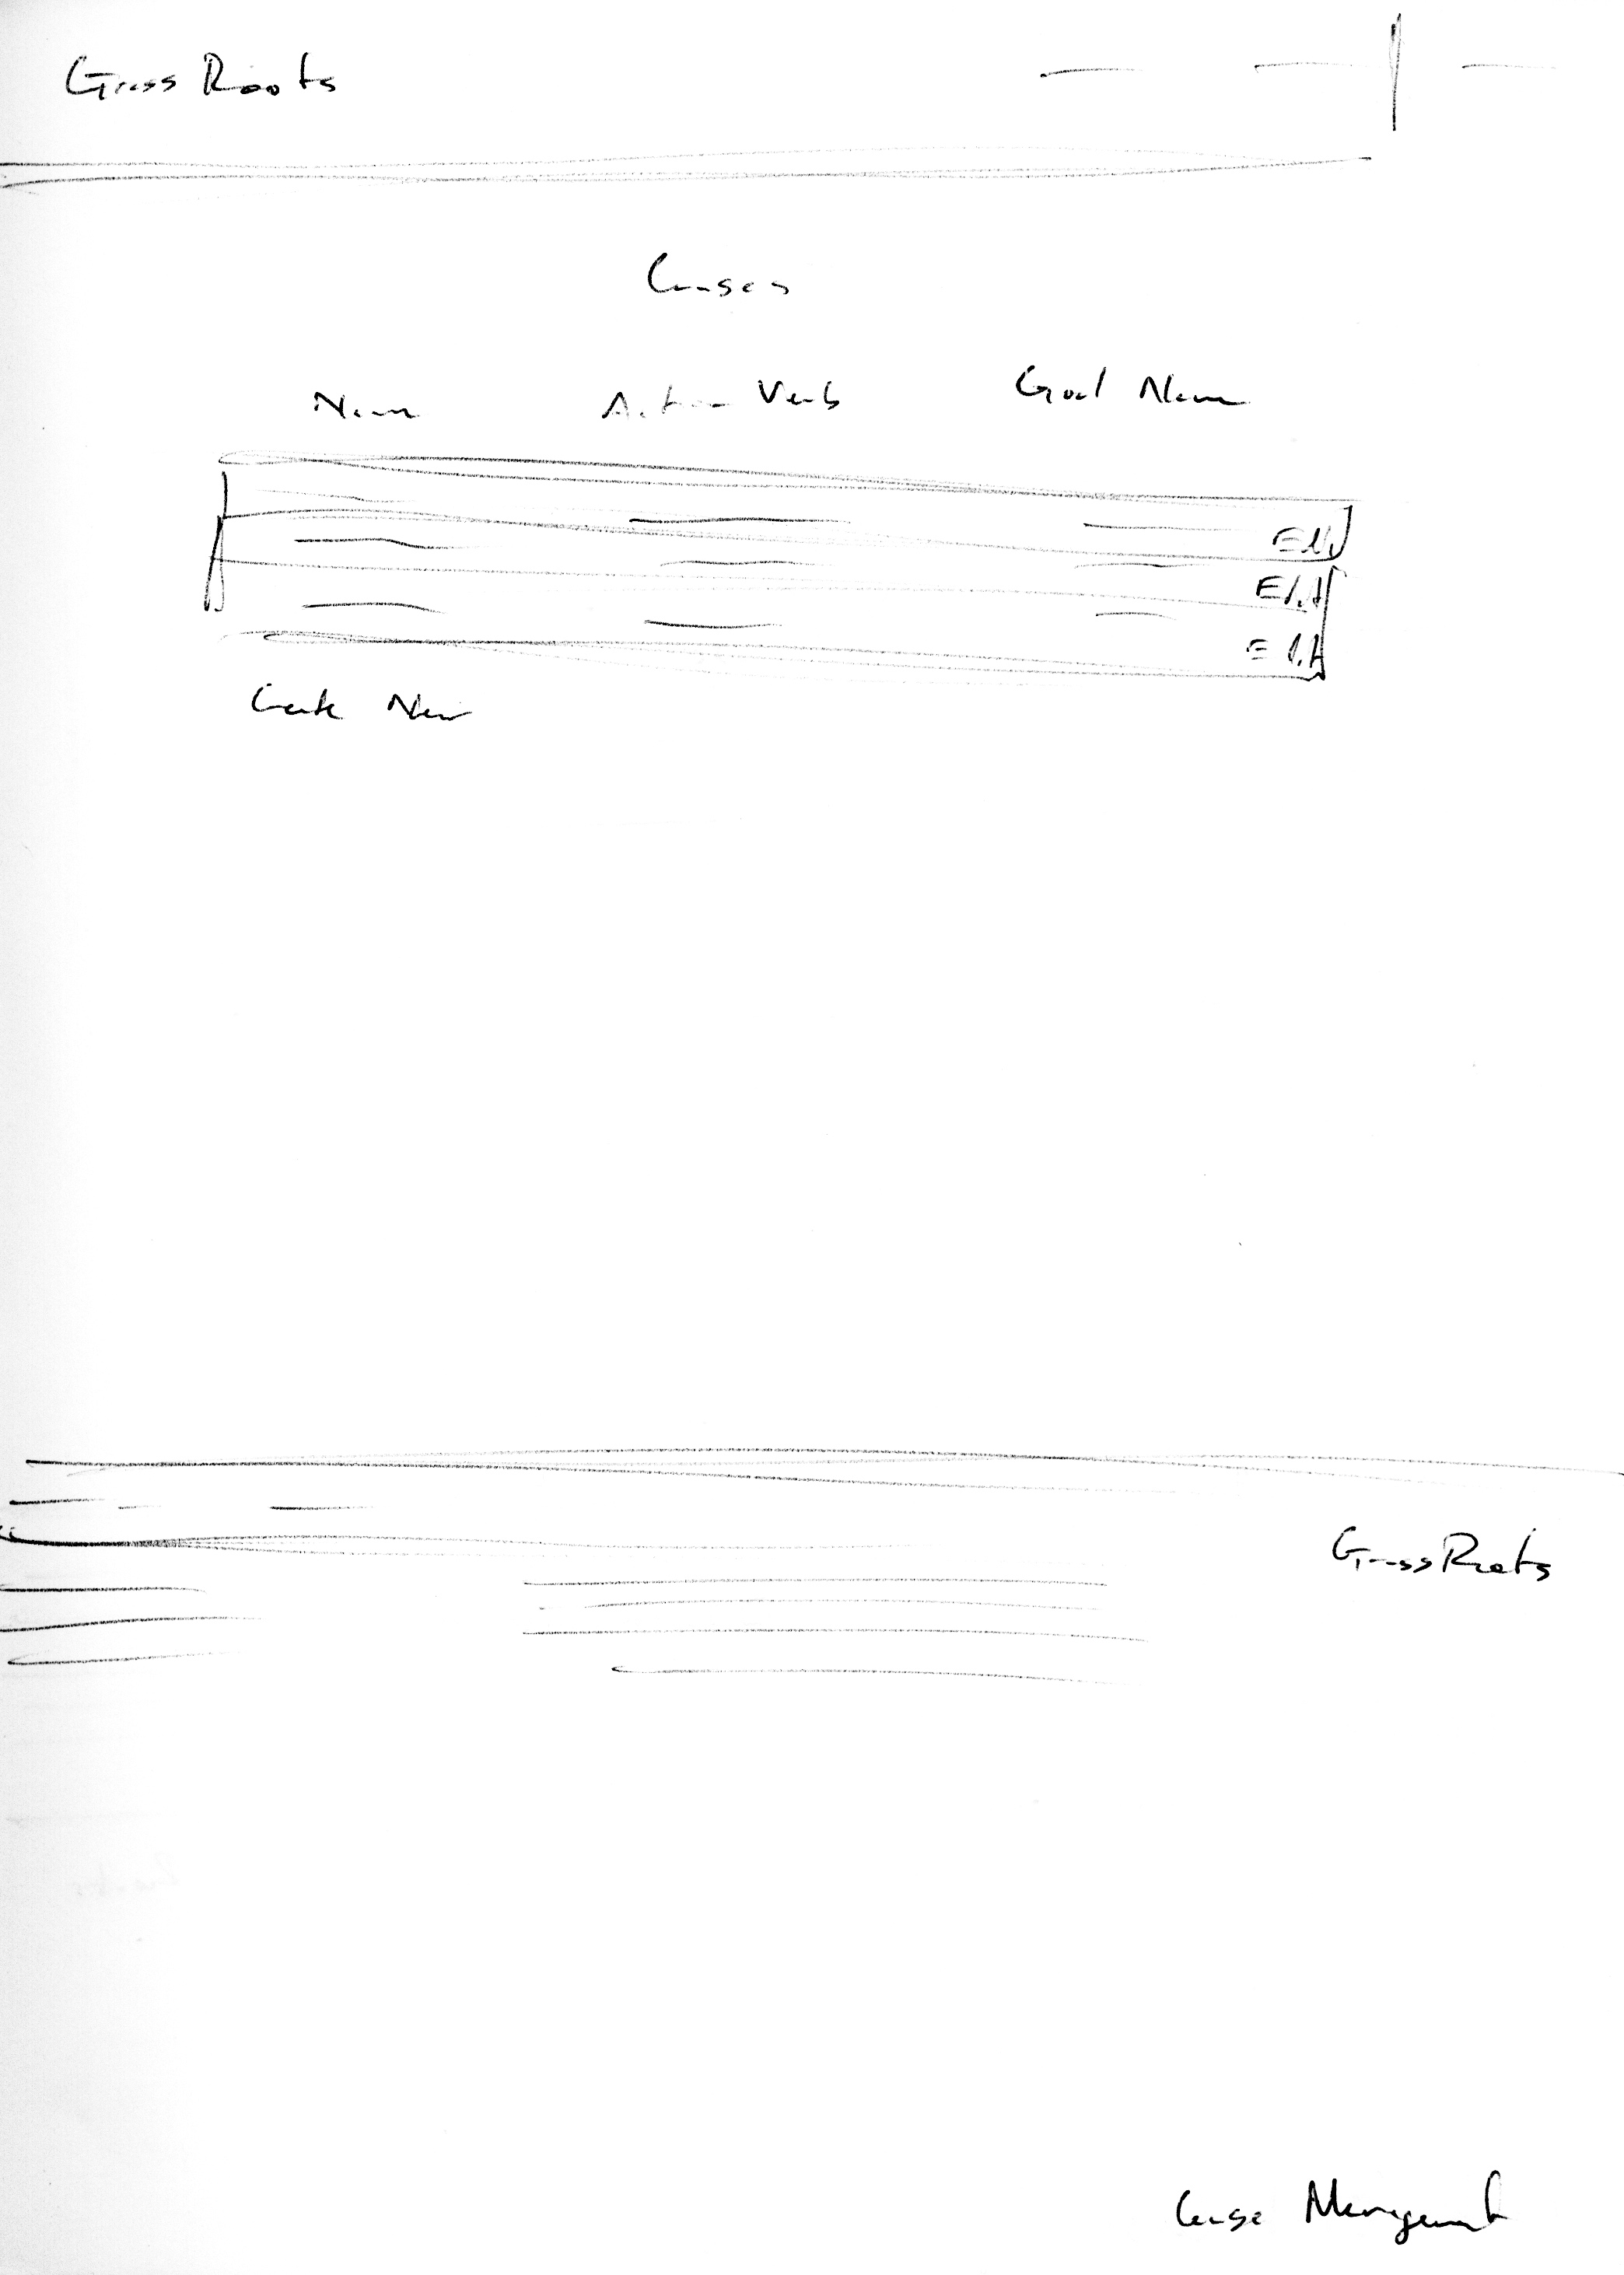 Grass Roots
Causes
Name Action Verb Goal Name
Edit
Edit
Edit
Create New
Grass Roots
Cause Management